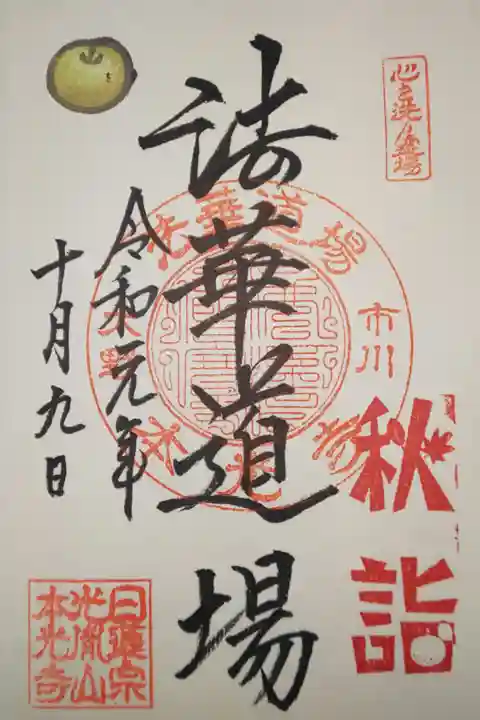 心を洗う道場
法華道場
令和元年
十月九日
法華道場
市川
大野
本光寺
秋詣
日蓮宗
光胤山
本光寺